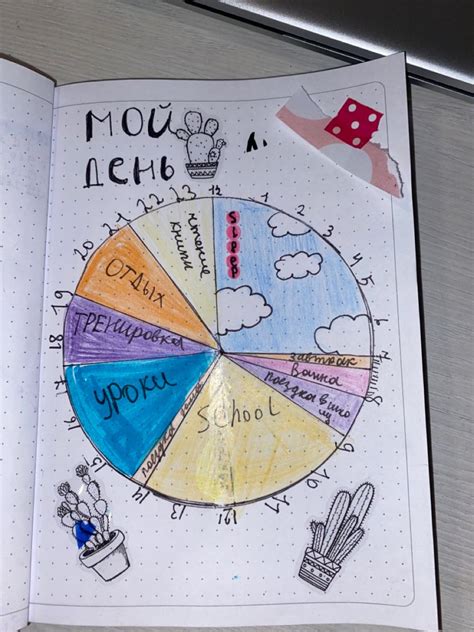 МОЙ
ДЕНЬ
Л.
12
1
2
3
4
5
6
7
8
9
10
11
12
13
14
15
17
18
19
20
21
22
23
Sleep
завтрак
ванна
поездка в шко
лу
SCHOOL
поездка
УРОКИ
ТРЕНИРОВКА
ОТДЫХ
чтение
книги